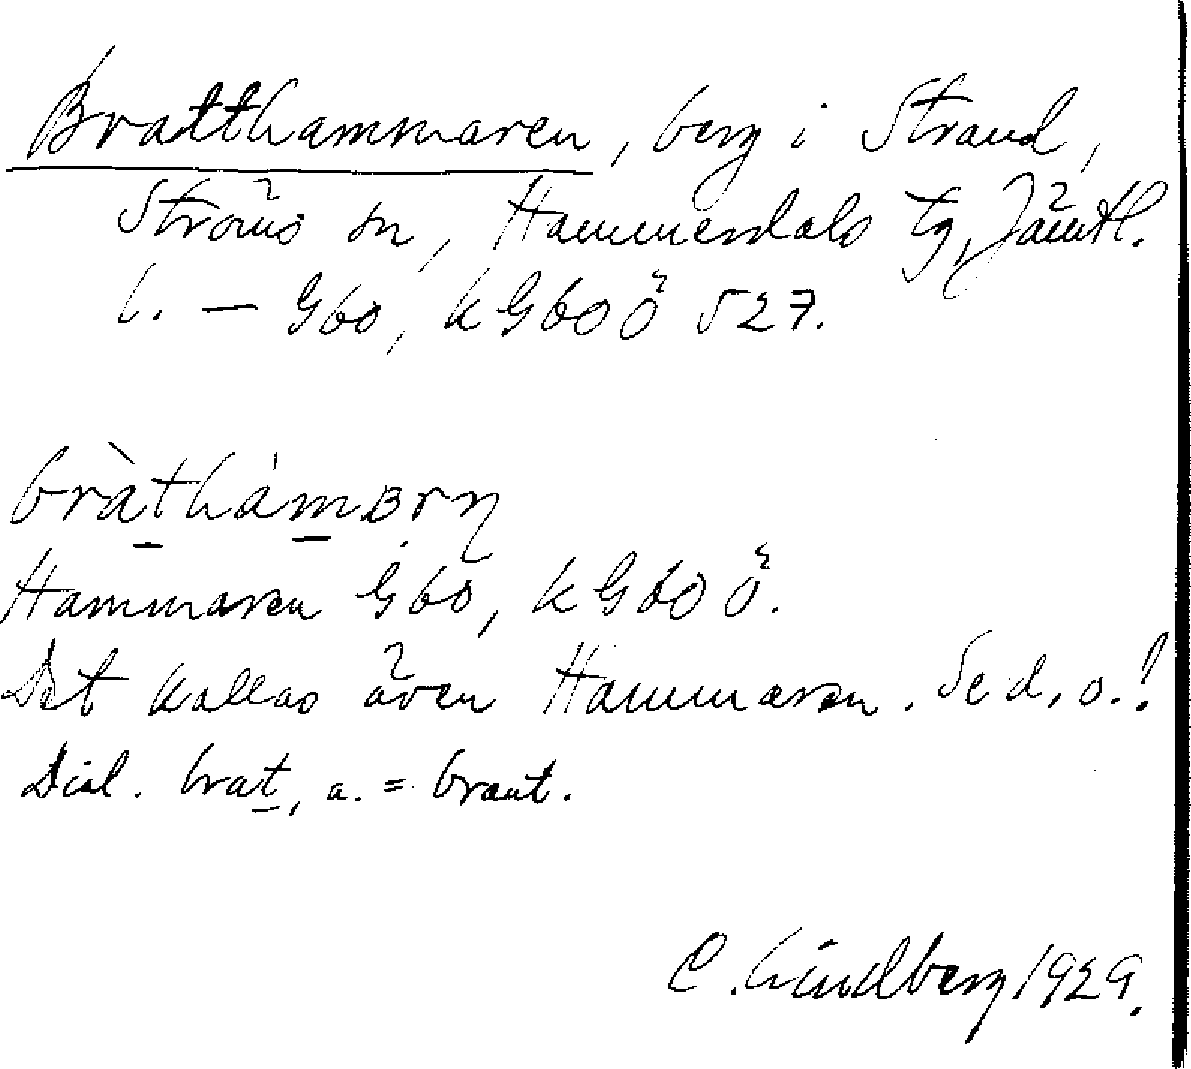 Bratthammaren, berg i Strand,
Ströms sn, Hammerdals tg, Jämtl.
l. — Gbo, k Gbo Ö 527.
bràthámʙrn̥
Hammaren Gbo, k Gbo Ö.
Det kallas även Hammaren. Se d. o.!
Dial. brat, a. = brant.
C. Lindberg 1929.